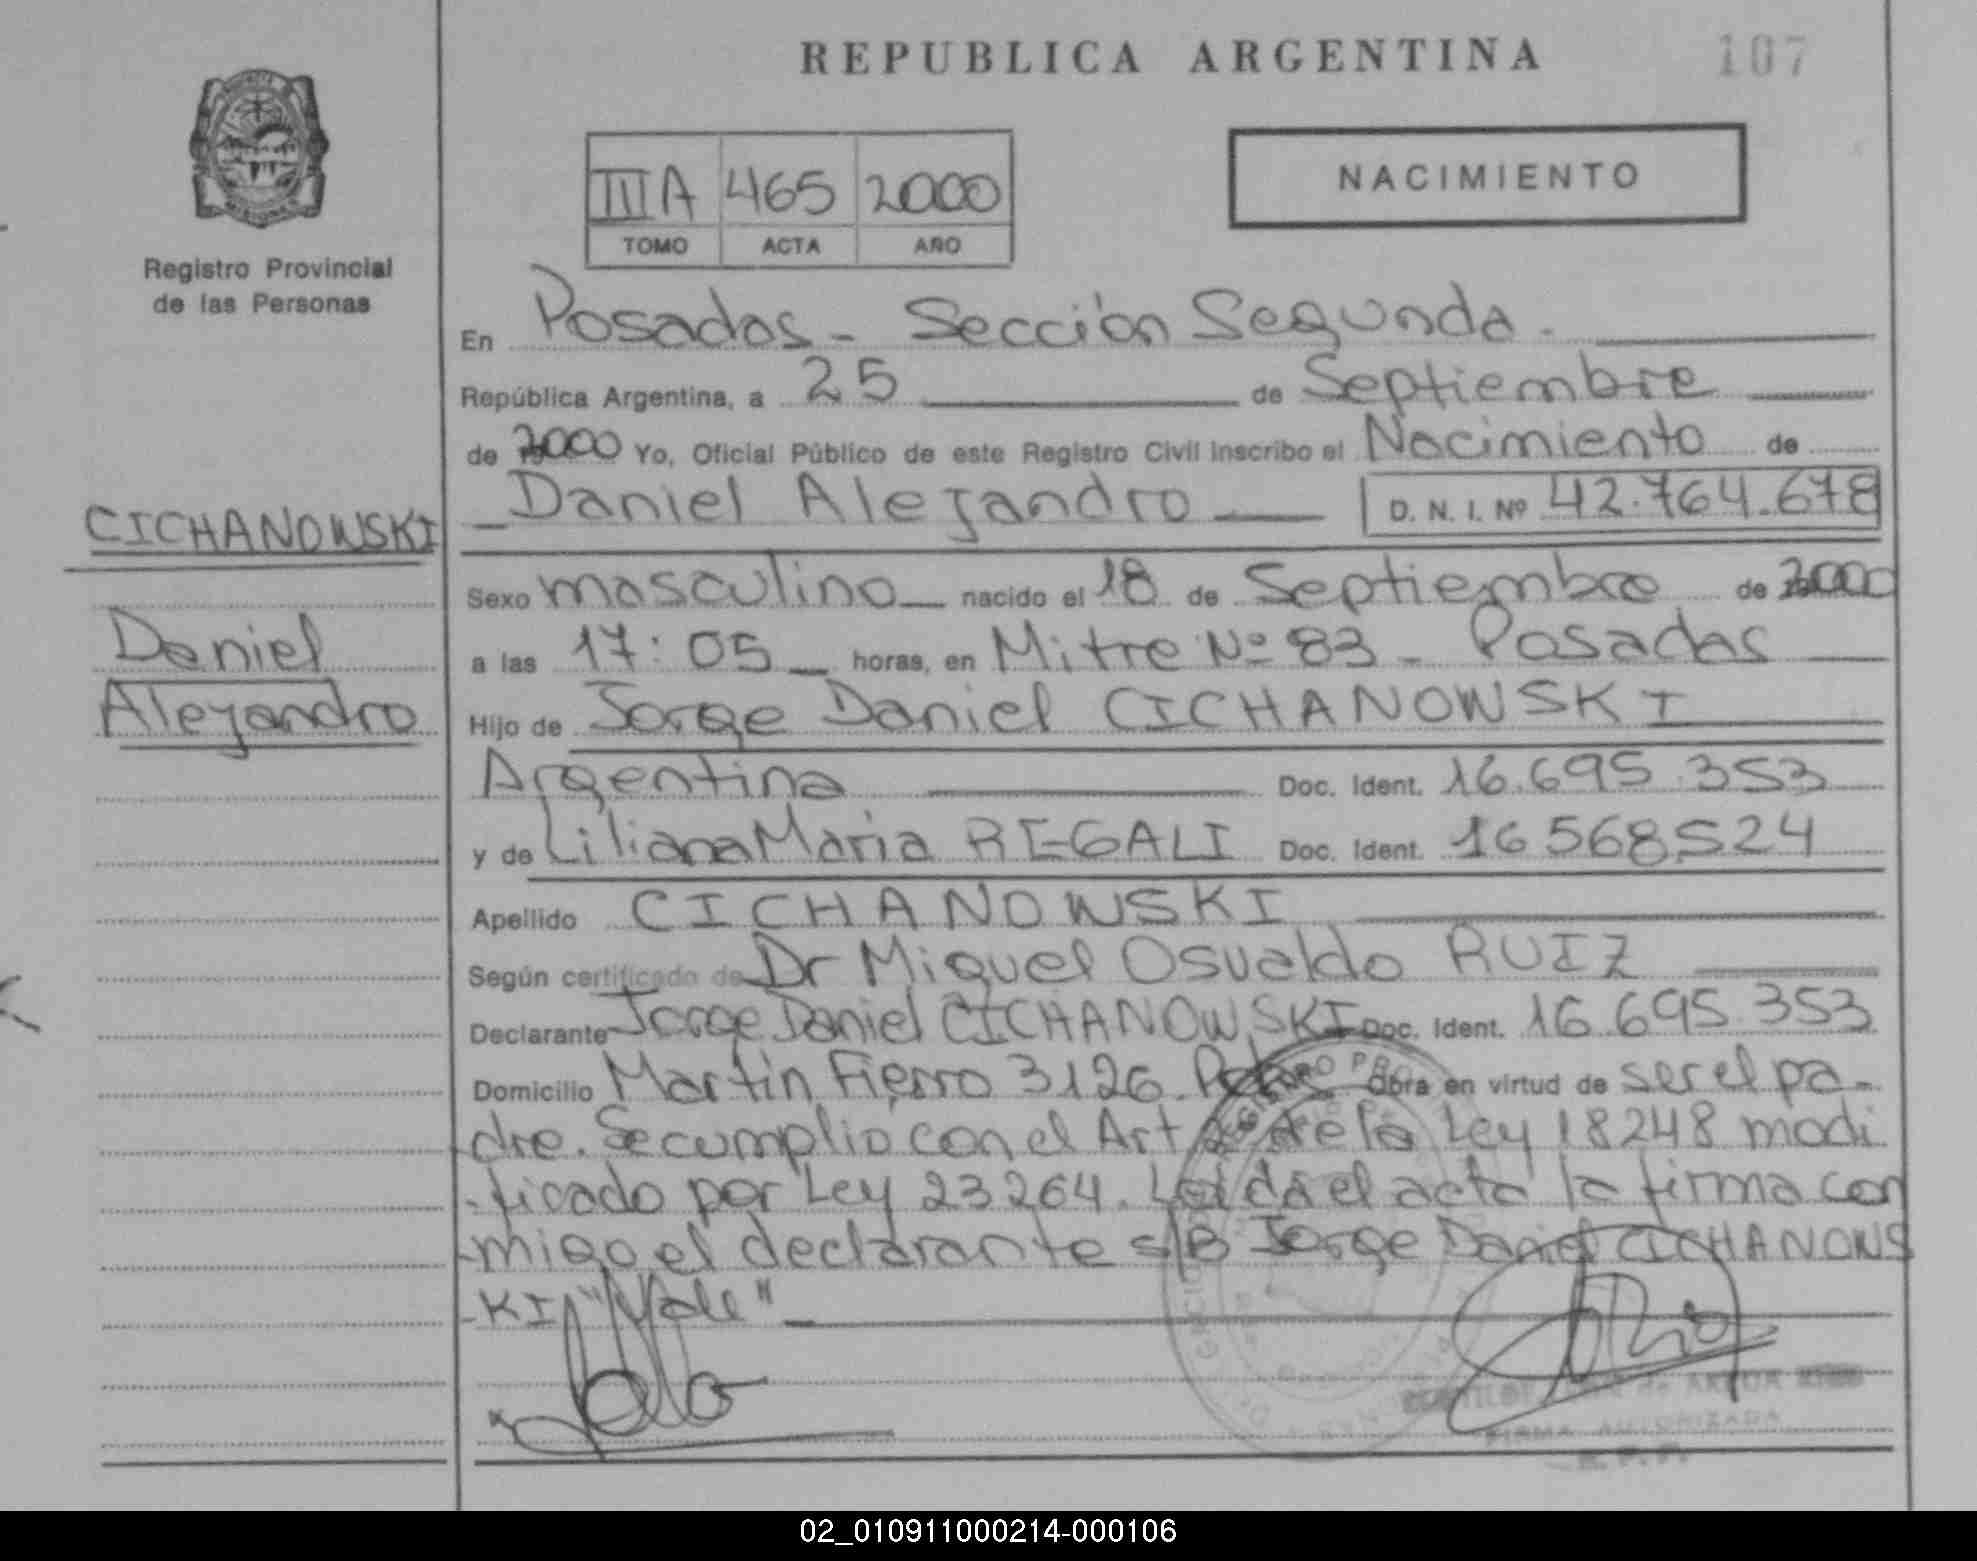 REPUBLICA ARGENTINA
107
Registro Provincial
de las Personas
IIIA 465 2000
TOMO ACTA AÑO
NACIMIENTO
En Posadas - Sección Segunda.
República Argentina, a 25 de Septiembre
de 2000 Yo, Oficial Público de este Registro Civil inscribo el Nacimiento de
Daniel Alejandro D. N. I. Nº 42.764.678
CICHANOWSKI
Daniel
Alejandro
Sexo masculino nacido el 18 de Septiembre de 2000
a las 17:05 horas, en Mitre Nº 83 - Posadas
Hijo de Jorge Daniel CICHANOWSKI
Argentina Doc. Ident. 16.695.353
y de Liliana Maria REGALI Doc. Ident. 16568524
Apellido CICHANOWSKI
Según certificado de Dr Miguel Osvaldo RUIZ
Declarante Jorge Daniel CICHANOWSKI Doc. Ident. 16.695.353
Domicilio Martin Fierro 3126. Obra en virtud de ser el pa-
dre. Se cumplio con el Art de la Ley 18248 modi
-ficado por Ley 23264. Leida el acta la firma con
-migo el declarante s/B Jorge Daniel CICHANOWS
-KI "Vale"
REGISTRO
FIRMA AUTORIZADA
02_010911000214-000106